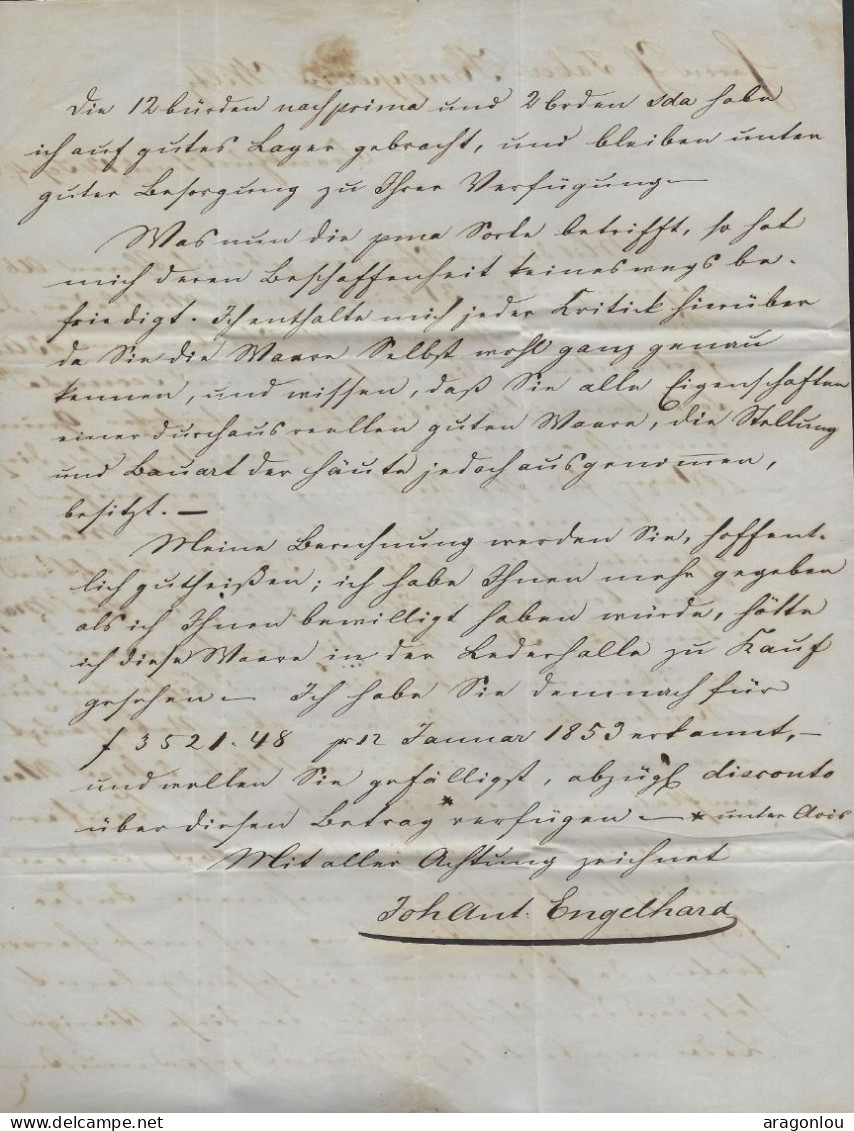 Die 12 bürden nachprima und 2 brden sda habe
ich auf gutes Lager gebracht, und bleiben unter
guter Besorgung zu Ihrer Verfügung –
Was nun die pma Sorte betrifft, so hat
mich deren Beschaffenheit keineswegs be-
friedigt. Ich enthalte mich jeder Kritick hierüber
da Sie die Waare Selbst wohl ganz genau
kennen, und wissen, daß Sie alle Eigenschaften
einer durchaus reellen guten Waare, die Stellung
und Bauart der Häute jedoch ausgenom̅en,
besitzt. –
Meine Berechnung werden Sie, hoffent-
lich gutheißen; ich habe Ihnen mehr gegeben
als ich Ihnen bewilligt haben würde, hätte
ich diese Waare in der Lederhalle zu Kauf
gesehen – Ich habe Sie demnach für
f 3521.48 pr 12 Januar 1853 erkannt, –
und wollen Sie gefälligst, abzügl disconto
über diesen Betrag * verfügen – * unter Avis
Mit aller Achtung zeichnet
Joh Ant. Engelhard
delcampe.net
aragonlou